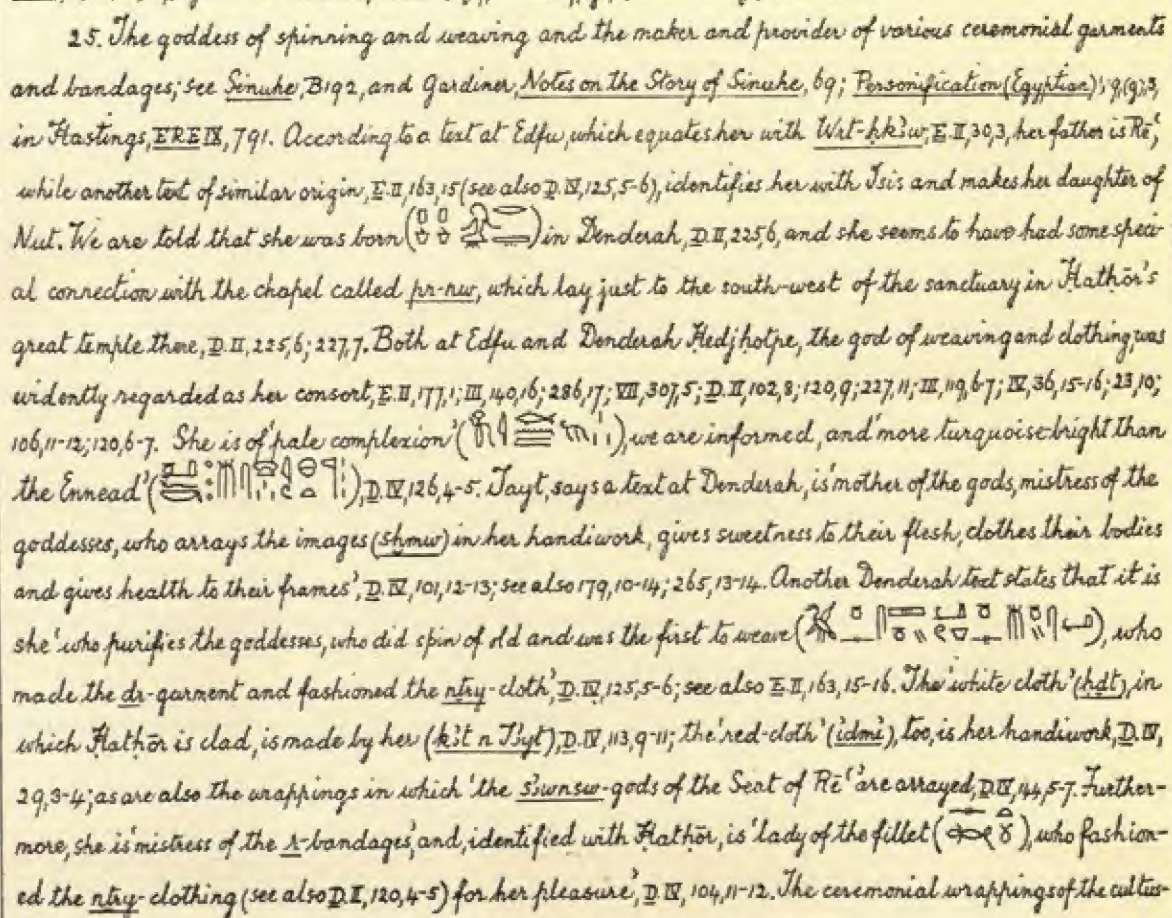 25. The goddess of spinning and weaving and the maker and provider of various ceremonial garments
and bandages; see Sinuhe, B192, and Gardiner, Notes on the Story of Sinuhe, 69; Personification (Egyptian), 9, (9), 3,
in Hastings, ERE IX, 791. According to a text at Edfu, which equates her with Wrt-ḥkꜣw, E. II, 30, 3, her father is Rēʿ,
while another text of similar origin, E. II, 163, 15 (see also D. IV, 125, 5-6), identifies her with Isis and makes her daughter of
Nut. We are told that she was born ( ) in Denderah, D. II, 225, 6, and she seems to have had some speci-
al connection with the chapel called pr-nw, which lay just to the south-west of the sanctuary in Ḥatḥōr's
great temple there, D. II, 225, 6; 227, 7. Both at Edfu and Denderah Ḥedjḥotpe, the god of weaving and clothing, was
evidently regarded as her consort, E. II, 177, 1; III, 140, 16; 286, 17; VII, 307, 5; D. II, 102, 8; 120, 9; 227, 11; III, 119, 6-7; IV, 36, 15-16; 23, 10;
106, 11-12; 120, 6-7. She is of 'pale complexion' ( ), we are informed, and 'more turquoise-bright than
the Ennead' ( ), D. IV, 126, 4-5. Tayt, says a text at Denderah, is 'mother of the gods, mistress of the
goddesses, who arrays the images (sḫmw) in her handiwork, gives sweetness to their flesh, clothes their bodies
and gives health to their frames', D. IV, 101, 12-13; see also 179, 10-14; 265, 13-14. Another Denderah text states that it is
she 'who purifies the goddesses, who did spin of old and was the first to weave ( ), who
made the dr-garment and fashioned the nṯry-cloth', D. IV, 125, 5-6; see also E. II, 163, 15-16. The 'white cloth' (ḥḏt), in
which Ḥatḥōr is clad, is made by her (kꜣt n Tꜣyt), D. IV, 113, 9-11; the 'red-cloth' (idmi), too, is her handiwork, D. IV,
29, 3-4; as are also the wrappings in which 'the sꜣwnsw-gods of the Seat of Rēʿ' are arrayed, D. IV, 44, 5-7. Further-
more, she is 'mistress of the -bandages', and, identified with Ḥatḥōr, is 'lady of the fillet ( ), who fashion-
ed the nṯry-clothing (see also D. II, 120, 4-5) for her pleasure', D. IV, 104, 11-12. The ceremonial wrappings of the cultus-